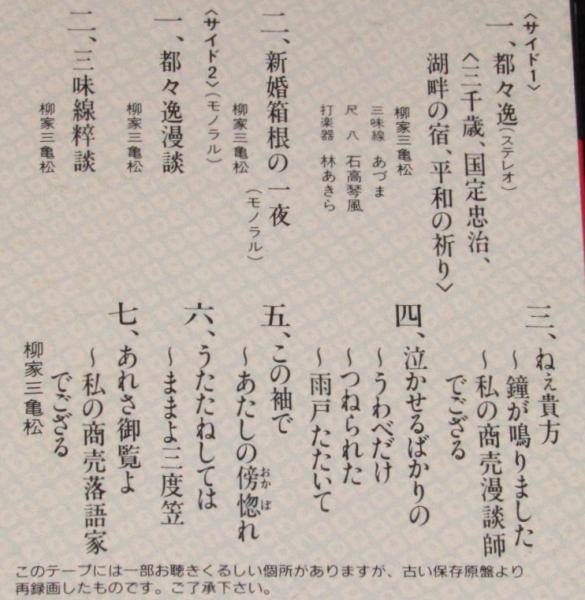 〈サイド1〉
一、都々逸(ステレオ)
〈三千歳、国定忠治、
湖畔の宿、平和の祈り〉
柳家三亀松
三味線 あづま
尺八 石高琴風
打楽器 林あきら
二、新婚箱根の一夜
(モノラル)
柳家三亀松
〈サイド2〉(モノラル)
一、都々逸漫談
柳家三亀松
二、三味線粋談
柳家三亀松
三、ねぇ貴方
〜鐘が鳴りました
〜私の商売漫談師
でござる
四、泣かせるばかりの
〜うわべだけ
〜つねられた
〜雨戸たたいて
五、この袖で
〜あたしの傍惚れ
おかぼ
六、うたたねしては
〜ままよ三度笠
七、あれさ御覧よ
〜私の商売落語家
でござる
柳家三亀松
このテープには一部お聴きくるしい個所がありますが、古い保存原盤より
再録画したものです。ご了承下さい。